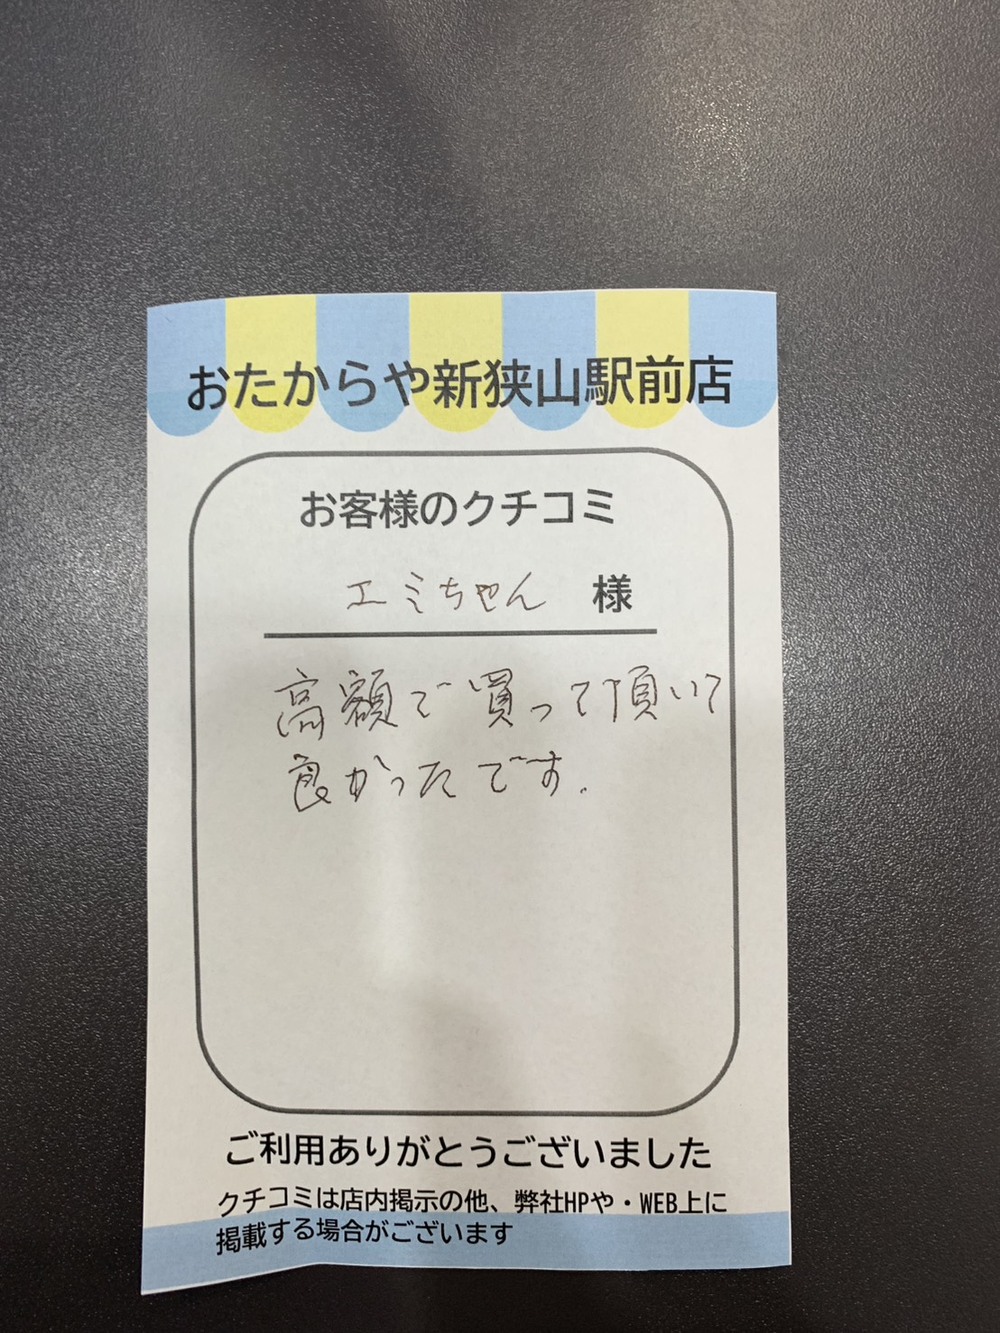 おたからや新狭山駅前店
お客様のクチコミ
エミちゃん 様
高額で買って頂いて
良かったです.
ご利用ありがとうございました
クチコミは店内掲示の他、弊社HPや・WEB上に
掲載する場合がございます